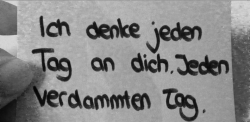 Ich denke jeden
Tag an dich. Jeden
verdammten Tag.